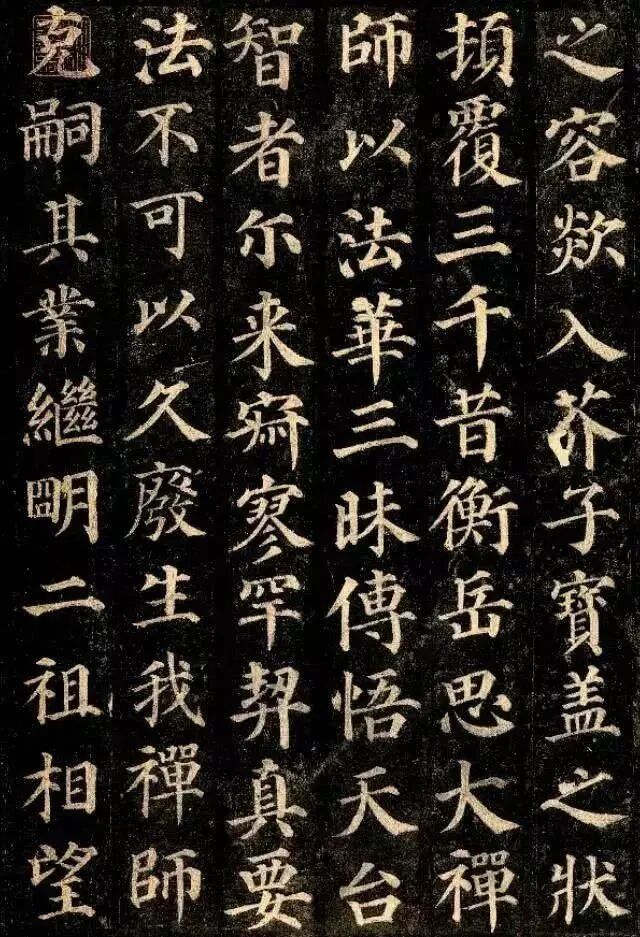 之容欻入芥子寶盖之狀
頓覆三千昔衡岳思大禪
師以法華三昧傳悟天台
智者尓来寂寥罕契真要
法不可以久廢生我禪師
克嗣其業繼明二祖相望